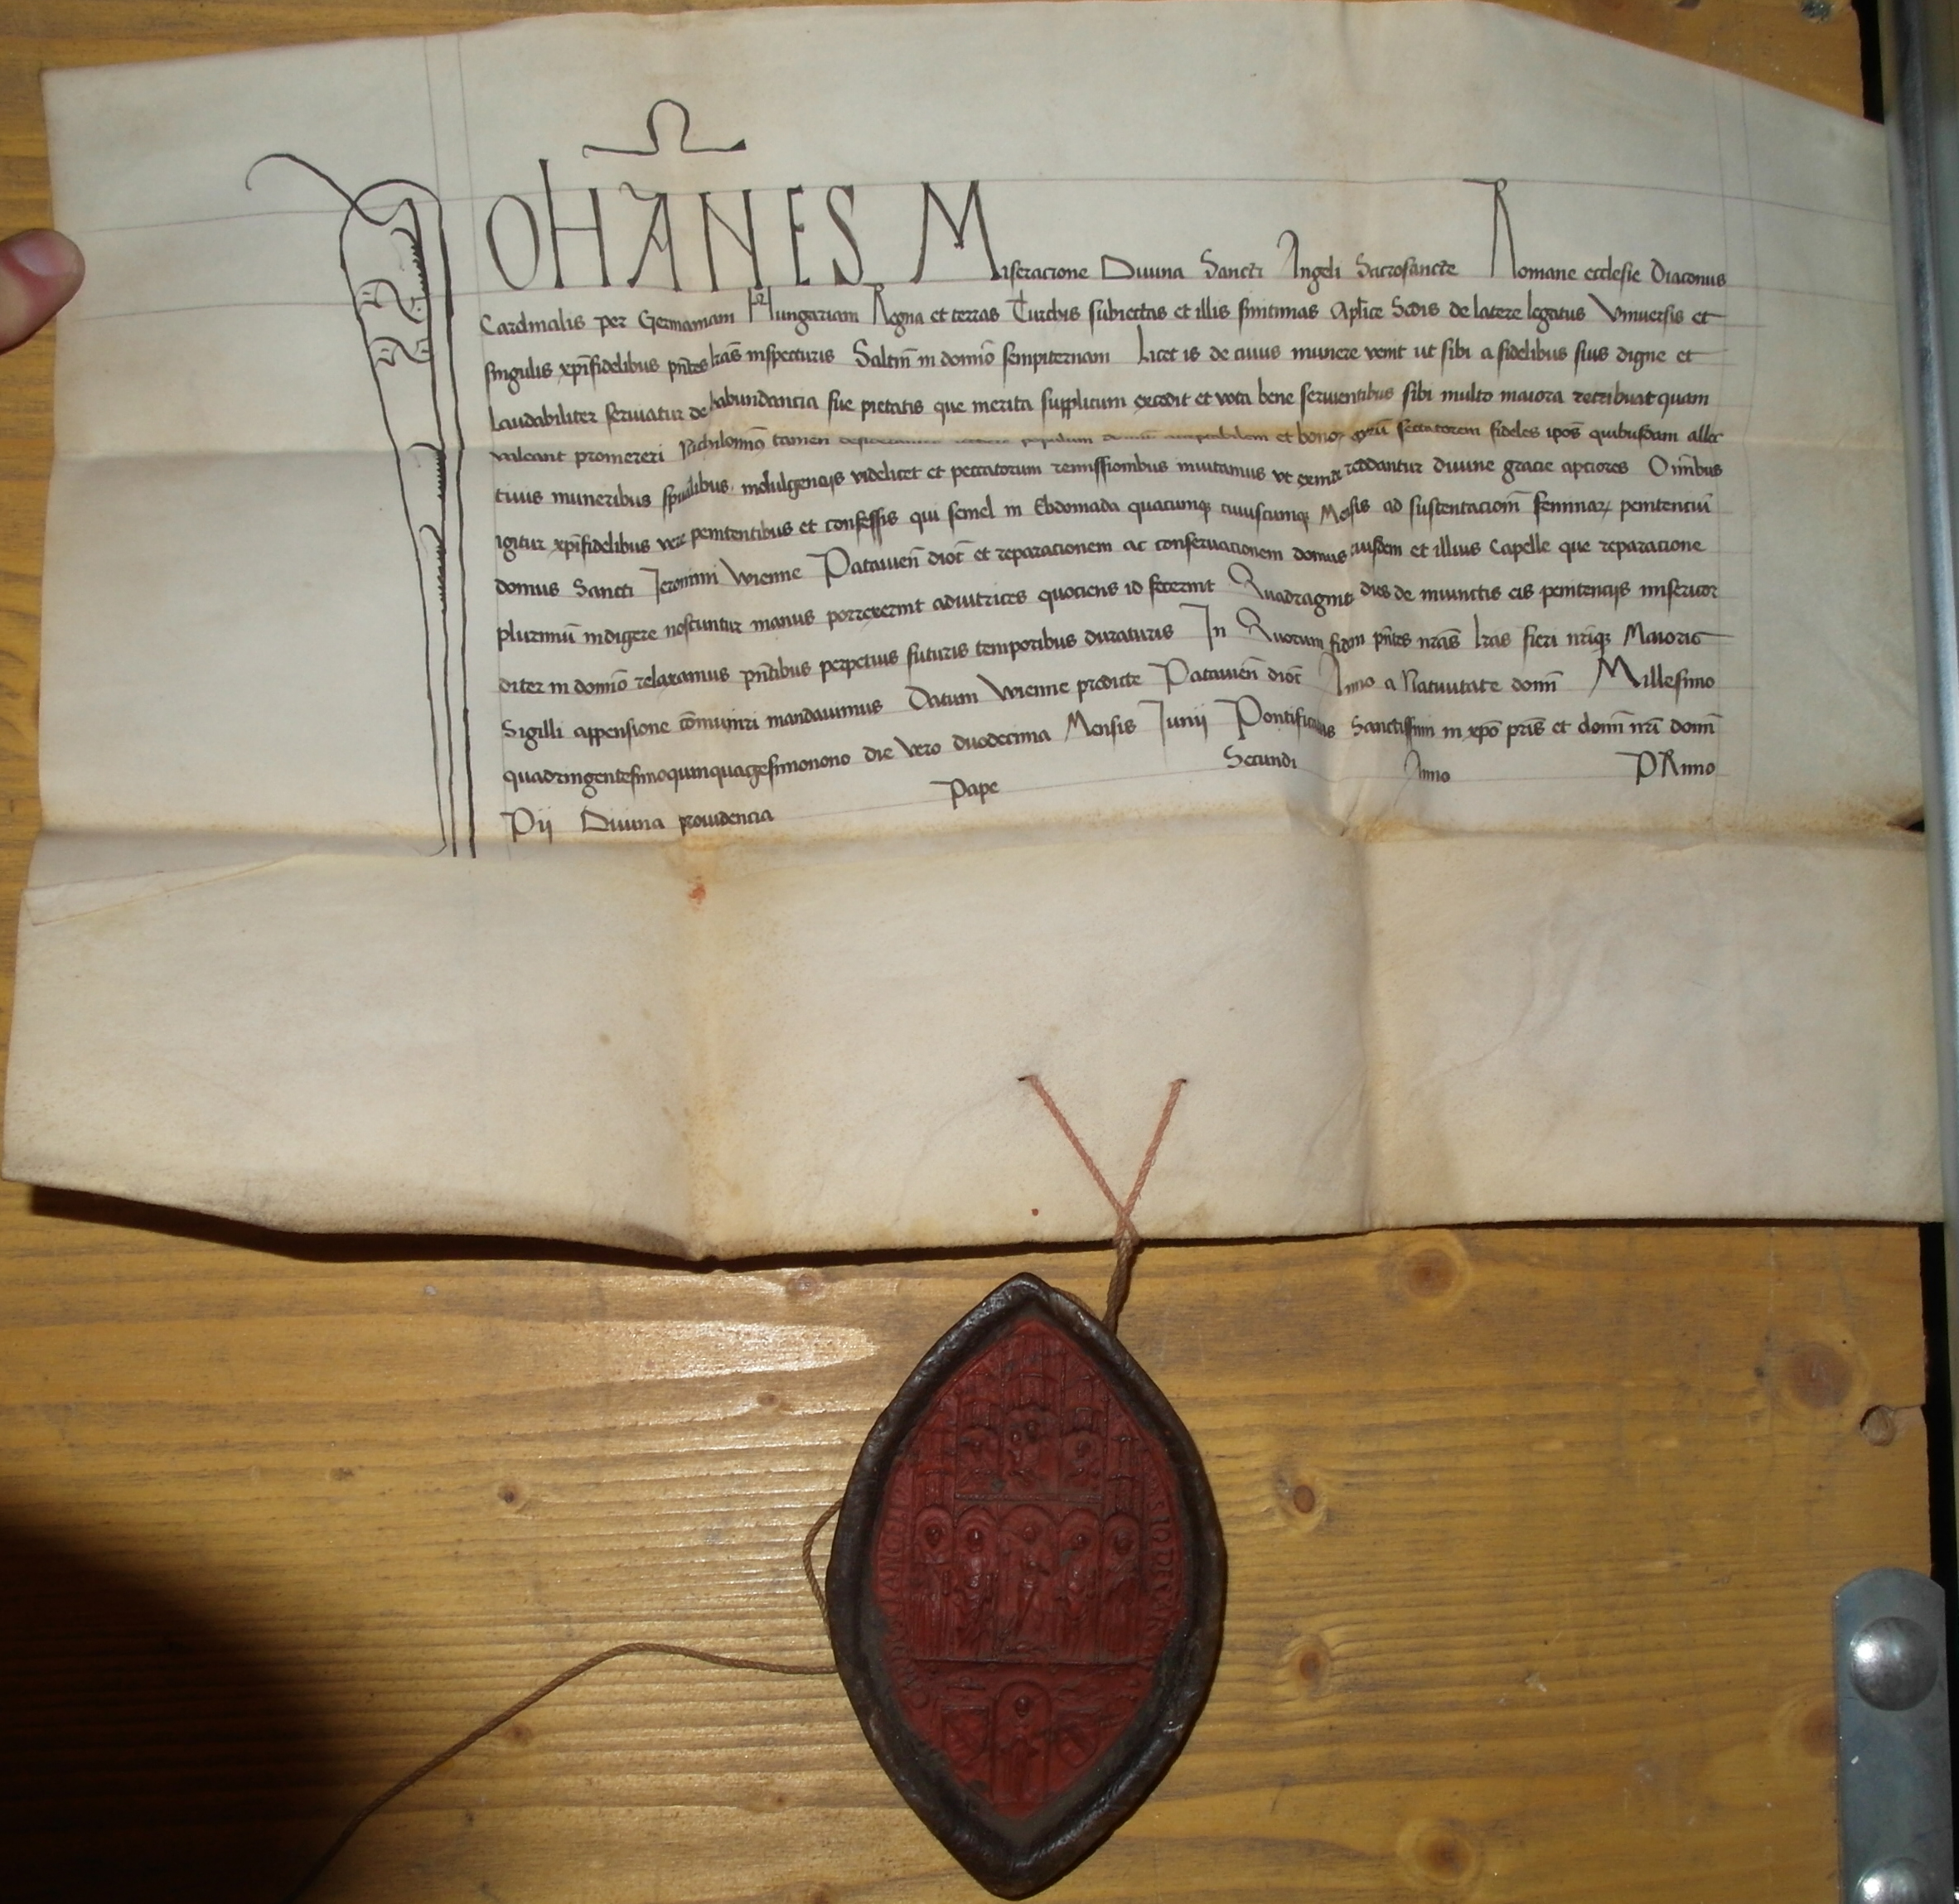 JOHANES Miseracione Diuina Sancti Angeli Sacrosancte Romane ecclesie Diaconus
Cardinalis per Germaniam Hungariam Regna et terras Turchis subiectas et illis finitimas Aplice Sedis de latere legatus Vniuersis et
singulis xpifidelibus pntes lras inspecturis Saltm in domno sempiternam Licet is de cuius munere venit ut sibi a fidelibus suis digne et
laudabiliter seruiatur de habundancia sue pietatis que merita supplicum excedit et vota bene seruientibus sibi multo maiora retribuat quam
valeant promereri Nichilomino tamen populum et bonor sectatorem fideles ipos quibusdam allec
tiuis muneribus spualibus indulgencijs videlicet et peccatorum remissionibus inuitamus vt exinde reddantur diuine gracie apciores Omibus
igitur xpifidelibus vere penitentibus et confessis qui semel in Ebdomada quacunq cuiuscunq Mesis ad sustentaciom feminar penitenciu
domus Sancti Jeronimi Wienne Patauien dioc et reparacionem ac conseruacionem domus eiusdem et illius Capelle que reparacione
plurimu indigere noscuntur manus porrexerint adiutrices quociens id fecerint Quadraginta dies de iniunctis eis penitencijs misericor
diter in domio relaxamus pntibus perpetuis futuris temporibus duraturis In Quorum fidem pntes nras lras fieri nriq Maioris
Sigilli appensione comuniri mandauimus Datum Wienne predicte Patauien dioc Anno a Natiuitate domi Millesimo
quadringentesimoquinquagesimonono die vero duodecima Mensis Junij Pontificatus Sanctissimi in xpo pris et domi nri domi
Pij Diuina prouidencia Pape Secundi Anno PRimo